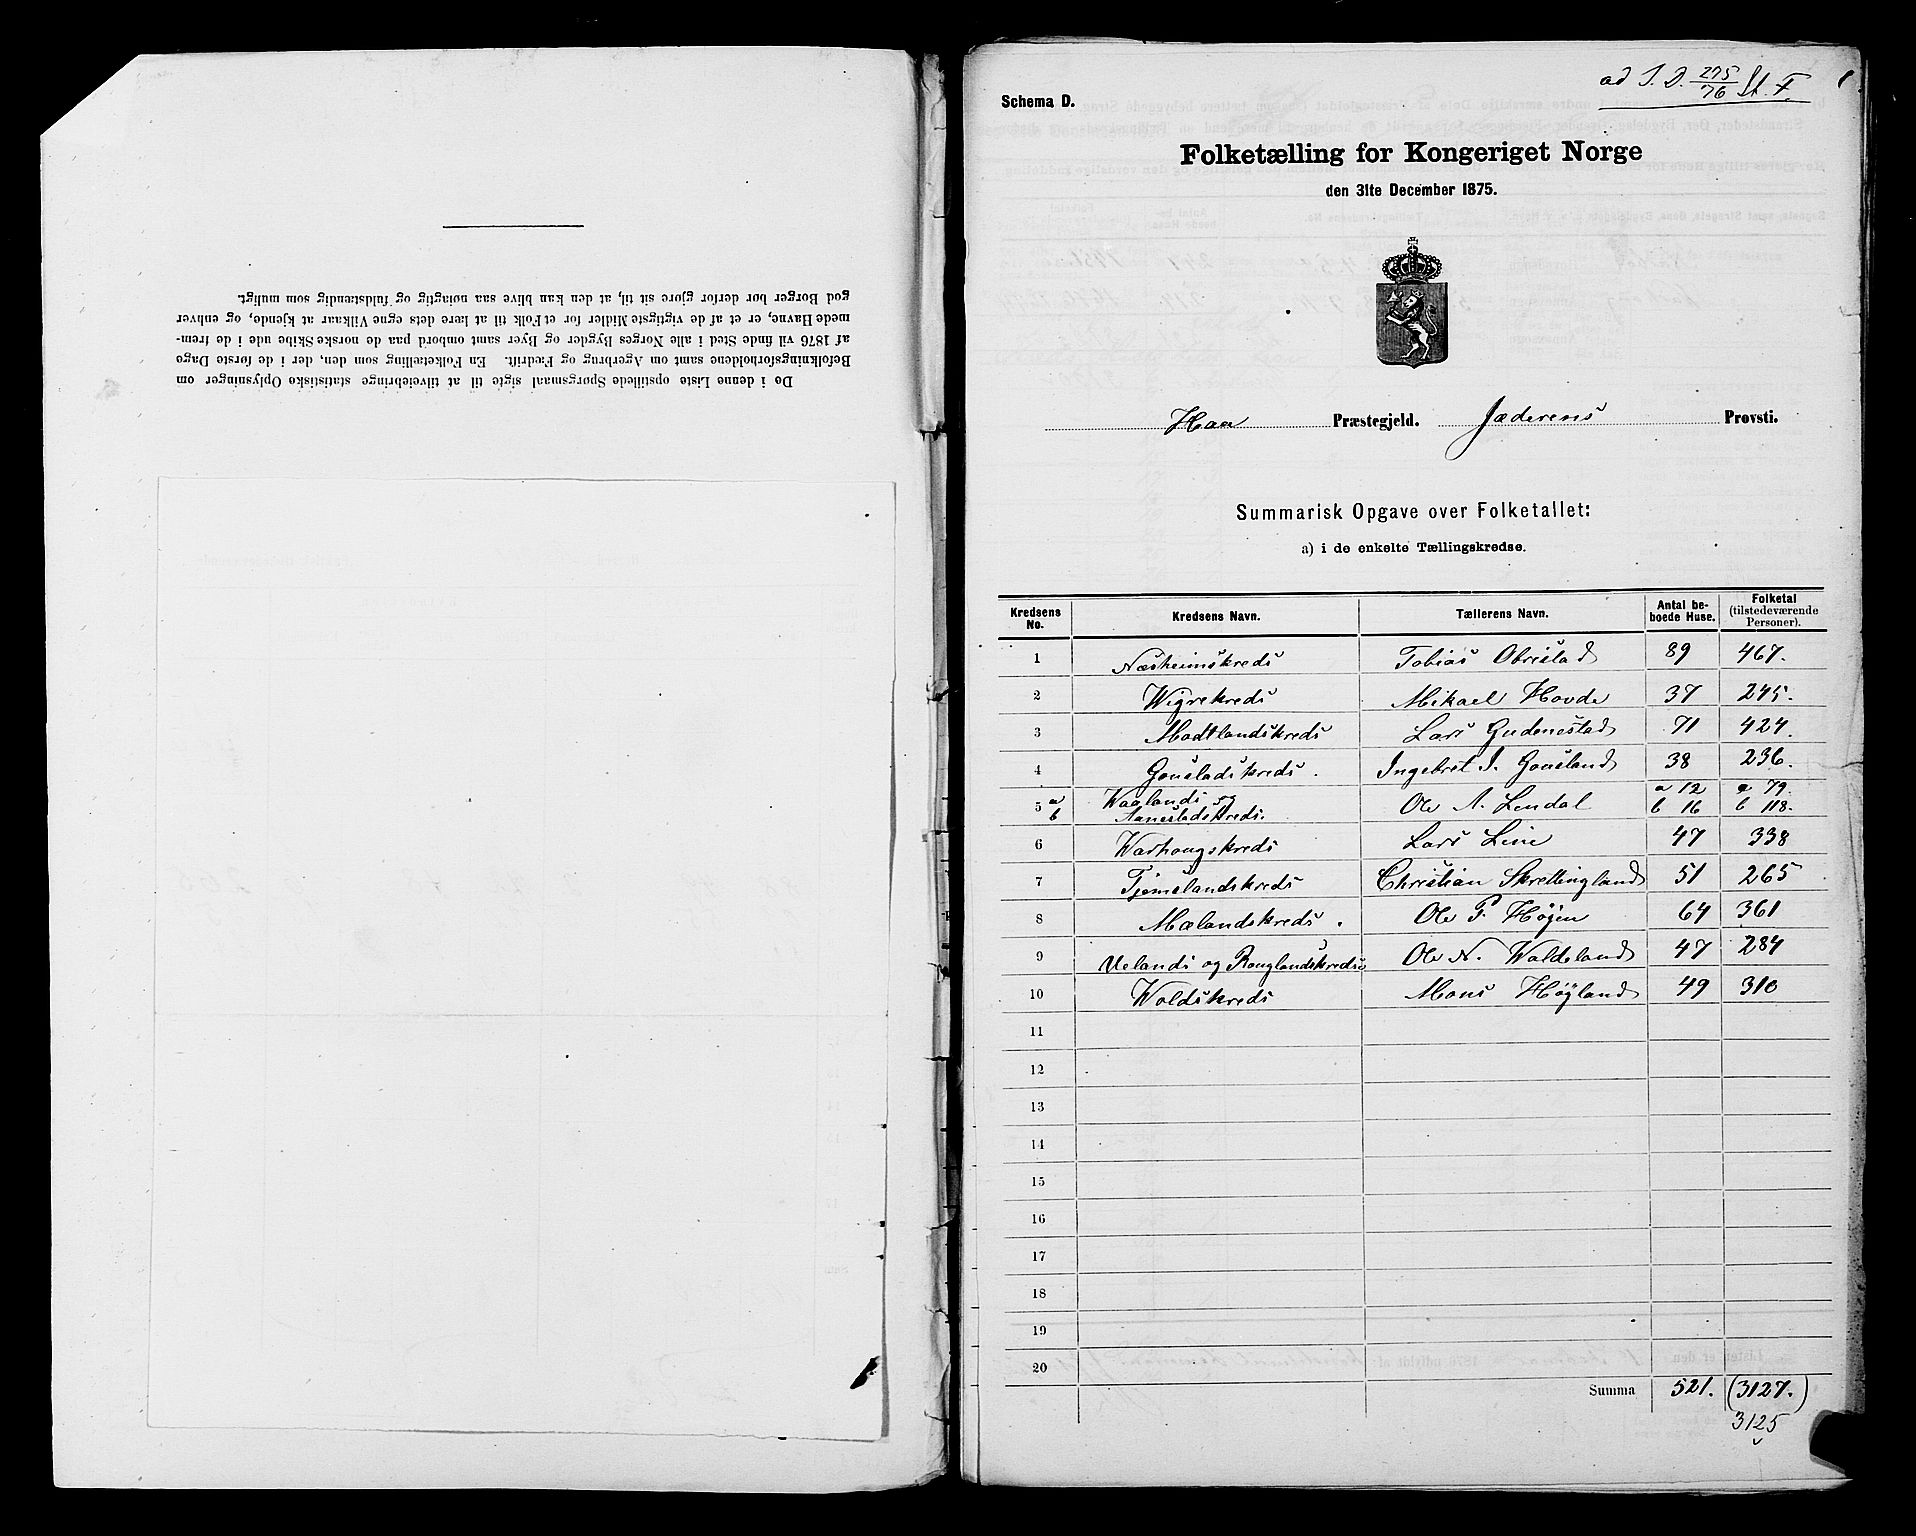 De i denne Liste opstillede Spørgsmaal sigte til at tilveiebringe statistiske Oplysninger om
Befolkningsforholdene samt om Agerbrug og Fædrift. En Folketælling som den, der i de første Dage
af 1876 vil finde Sted i alle Norges Bygder og Byer samt ombord paa de norske Skibe ude i de frem-
mede Havne, er et af de vigtigste Midler for et Folk til at lære dets egne Vilkaar at kjende, og enhver
god Borger bør derfor gjøre sit til, at den kan blive saa nøiagtig og fuldstændig som muligt.
ad I. D. 275/76 St. F.
Schema D.
Folketælling for Kongeriget Norge
den 31te December 1875.
Haa Præstegjeld. Jæderens Provsti.
Summarisk Opgave over Folketallet:
a) i de enkelte Tællingskredse.
Kredsens No. Kredsens Navn. Tællerens Navn. Antal beboede Huse. Folketal (tilstedeværende Personer).
1 Næsheimskreds Tobias Obrestad 89 467.
2 Wigrekreds Mikael Hovde 37 245.
3 Modtlandskreds Lars Gudmestad 71 424.
4 Gouslandskreds. Ingebret I. Gousland 38 236.
5 a Waalands og Ole A. Lendal a 12 a 79.
b Aanestadskreds. b 16 b 118.
6 Warhougskreds Lars Line 47 338
7 Tjemslandskreds Christian Skretlingland 51 265
8 Mælandskreds. Ole P. Højen 64 361
9 Uelands og Rouglandskreds Ole N. Woldeland 47 284
10 Woldskreds Mons Højland 49 310
11
12
13
14
15
16
17
18
19
20
Summa 521. (3127.)
3125